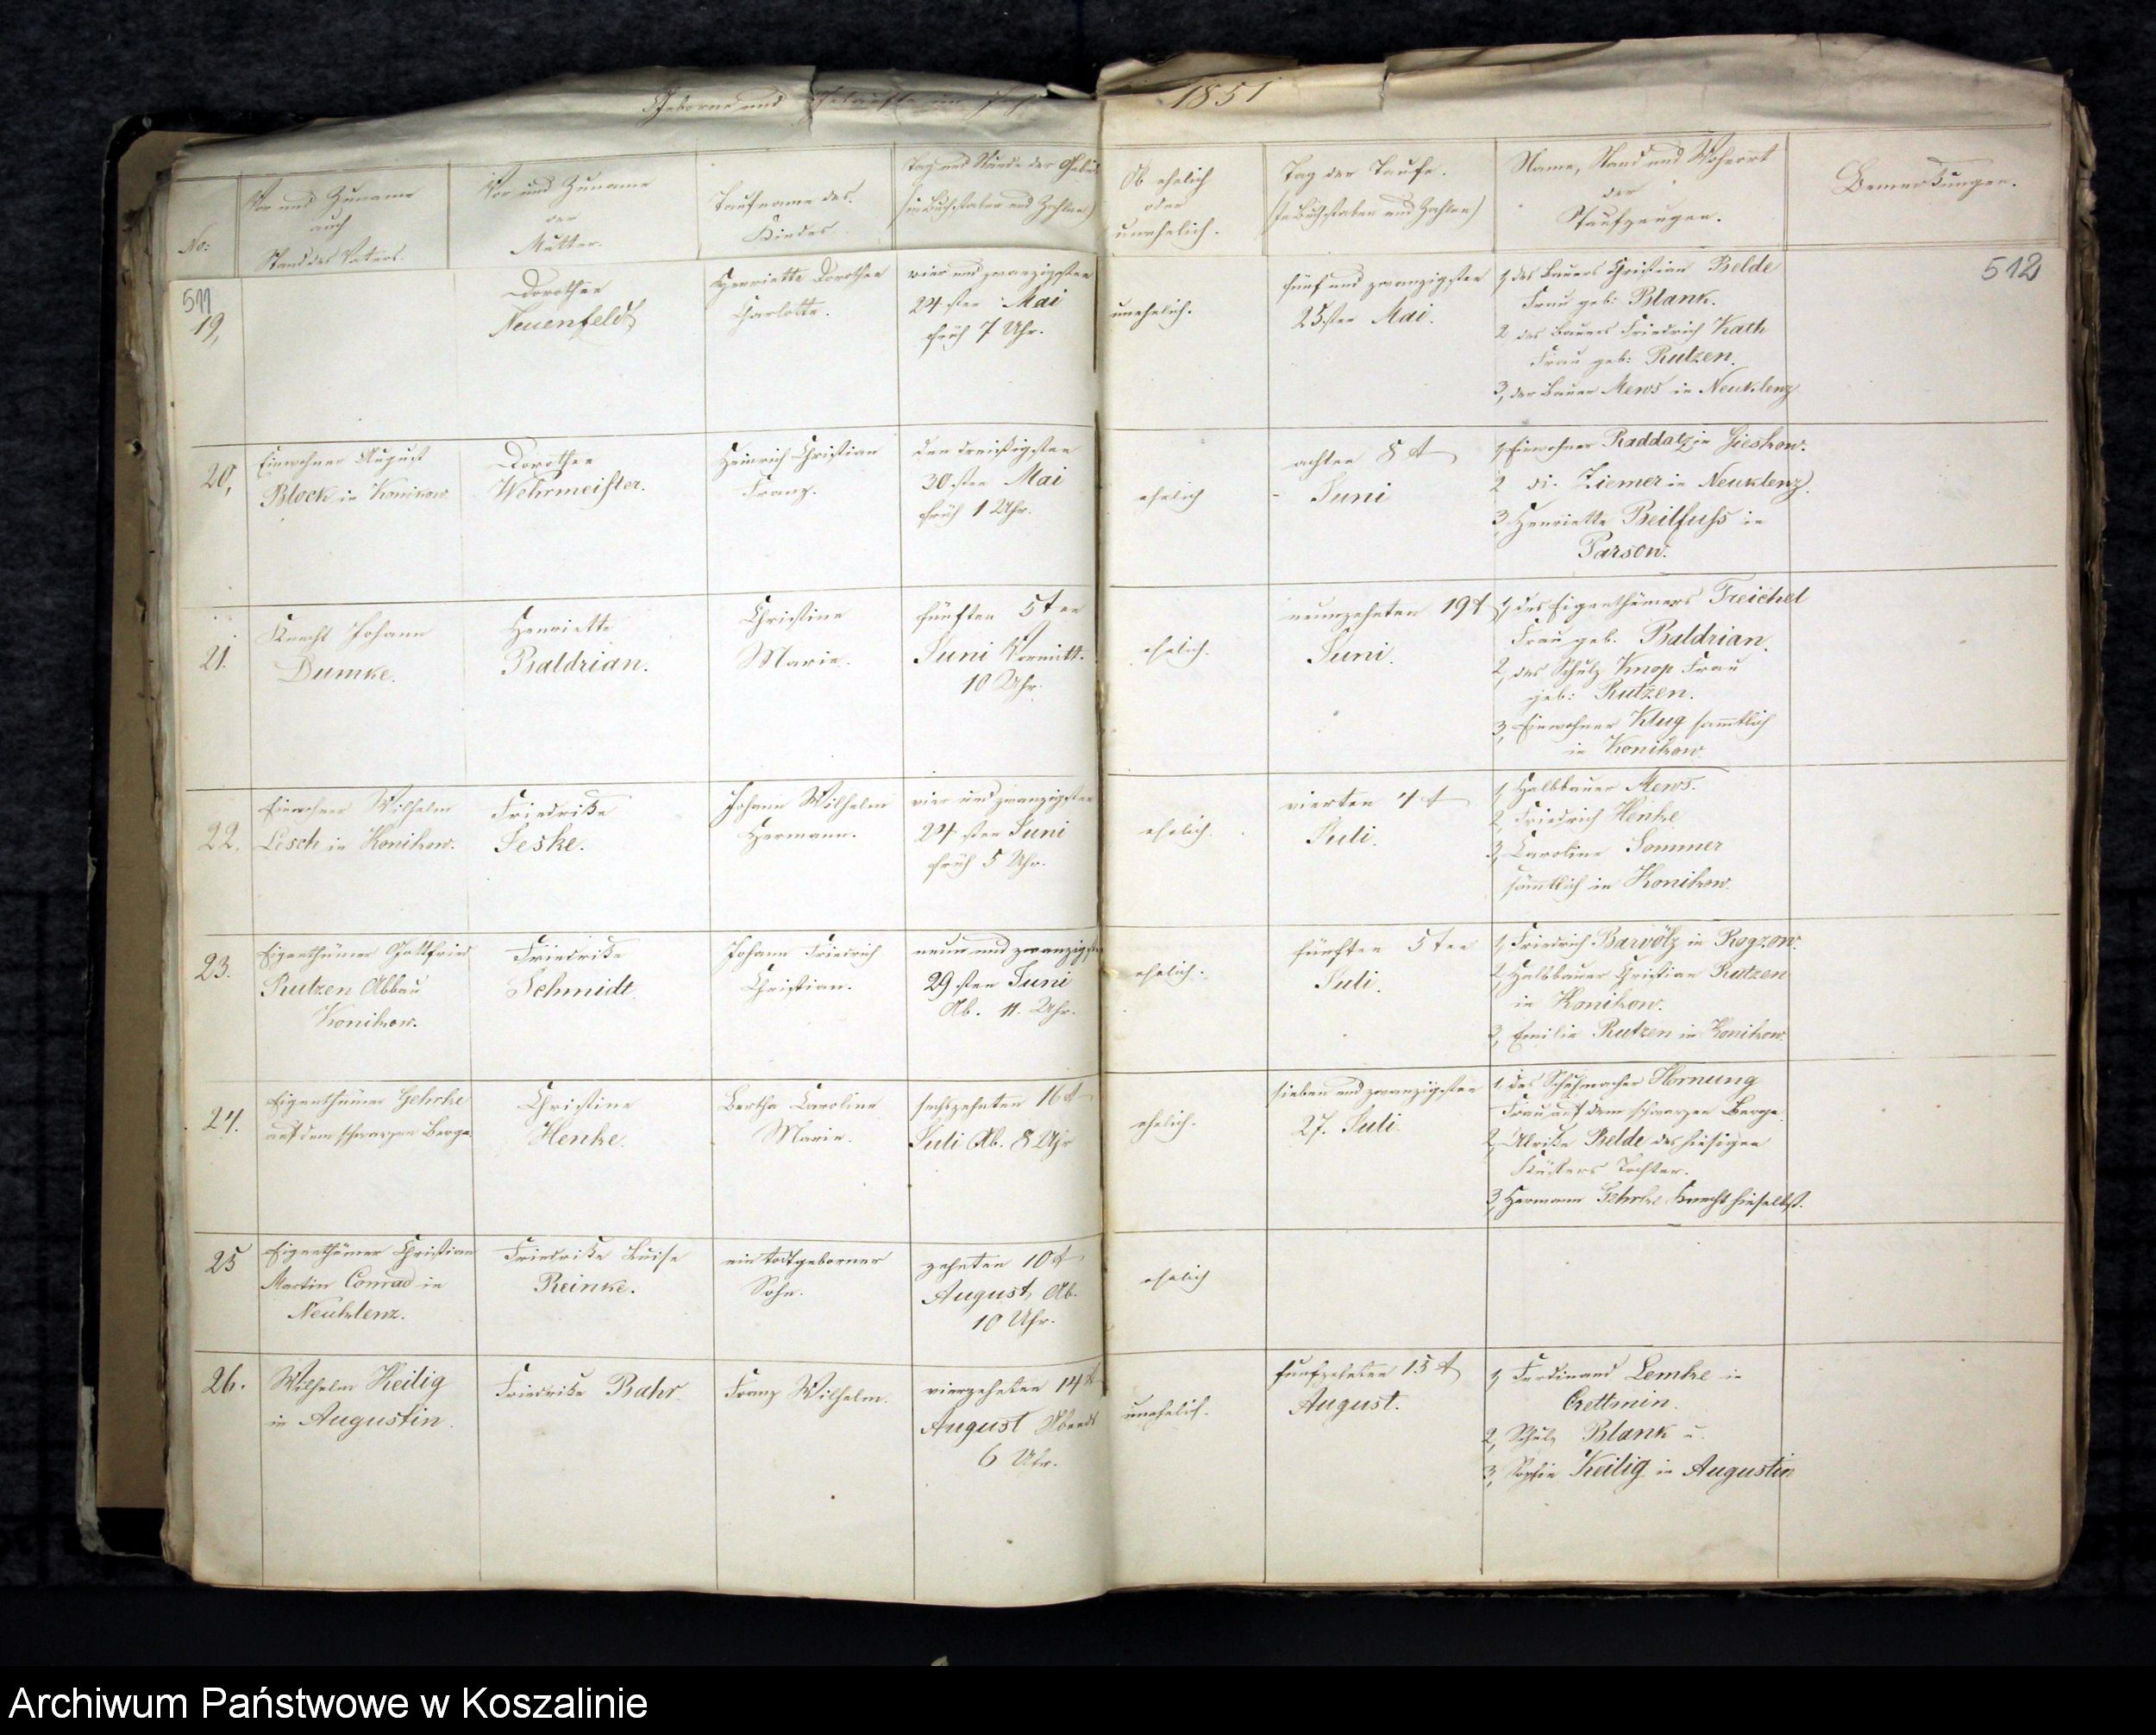 Geborne und Getaufte im Jahr 1851
No:
Vor und Zuname
auch
Stand des Vaters.
Vor und Zuname
der
Mutter.
Taufname des
Kindes.
Tag und Stunde der Geburt
(in Buchstaben und Zahlen)
Ob ehelich
oder
unehelich.
Tag der Taufe.
(In Buchstaben und Zahlen)
Name, Stand und Wohnort
der
Taufzeugen.
Bemerkungen.
511
512
19,
Dorothee
Neuenfeldt
Henriette Dorothee
Charlotte.
vier und zwanzigsten
24sten Mai
früh 7 Uhr.
unehelich.
fünf und zwanzigsten
25sten Mai.
1, des Bauers Christian Belde
Frau geb: Blank.
2, des Bauers Friedrich Kath
Frau geb: Rutzen.
3, der Bauer Mews in Neuklenz
20,
Einwohner August
Block in Konikow.
Dorothee
Wehrmeister.
Heinrich Christian
Franz.
den dreißigsten
30sten Mai
früh 1 Uhr.
ehelich
achten 8t
Juni
1, Einwohner Raddatz in Gieskow.
2 Ziemer in Neuklenz.
3, Henriette Beilfuhs in
Parsow.
21.
Knecht Johann
Dumke.
Henriette
Baldrian.
Christine
Marie.
fünften 5ten
Juni Vormitt.
10 Uhr.
ehelich.
neunzehnten 19t
Juni.
1, des Eigenthümers Treichel
Frau geb. Baldrian.
2, des Schulz Knop Frau
geb: Rutzen.
3, Einwohner Klug sämmtlich
in Konikow.
22,
Einwohner Wilhelm
Lesch in Konikow.
Friedrike
Jeske.
Johann Wilhelm
Hermann.
vier und zwanzigsten
24sten Juni
früh 5 Uhr.
ehelich.
vierten 4t
Juli.
1, Halbbauer Mews.
2, Friedrich Henke
3, Caroline Sommer
sämtlich in Konikow.
23.
Eigenthümer Gottfried
Rutzen Abbau
Konikow.
Friedrike
Schmidt.
Johann Friedrich
Christian.
neun und zwanzigsten
29sten Juni
Ab. 11. Uhr.
ehelich.
fünften 5ten
Juli.
1, Friedrich Barvölz in Rogzow.
2, Halbbauer Christian Rutzen
in Konikow.
3, Emilie Rutzen in Konikow.
24.
Eigenthümer Gehrke
auf dem schwarzen Berge.
Christine
Henke.
Bertha Caroline
Marie.
sechszehnten 16t
Juli Ab. 8 Uhr
ehelich.
sieben und zwanzigsten
27. Juli.
1, des Schuhmacher Hornung
Frau auf dem schwarzen Berge
2, Ulrike Belde des hiesigen
Küsters Tochter.
3, Hermann Gehrke Knecht hieselbst.
25
Eigenthümer Christian
Martin Conrad in
Neuklenz.
Friedrike Luise
Reinke.
ein todtgeborner
Sohn.
zehnten 10t
August, Ab.
10 Uhr.
ehelich
26.
Wilhelm Heilig
in Augustin.
Friedrike Bahr.
Franz Wilhelm.
vierzehnten 14t
August Abends
6 Uhr.
unehelich.
funfzehnten 15t
August.
1, Ferdinand Lemke in
Crettmin.
2, Schulz Blank u.
3, Sophie Heilig in Augustin
Archiwum Państwowe w Koszalinie